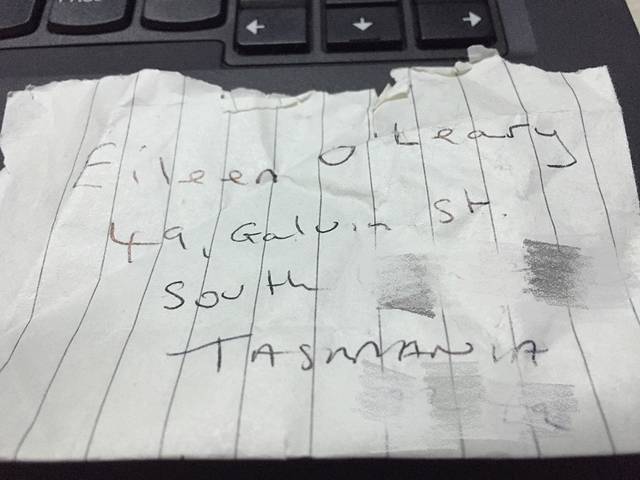 Eileen O'Leary
49, Galvin St.
South
TASMANIA